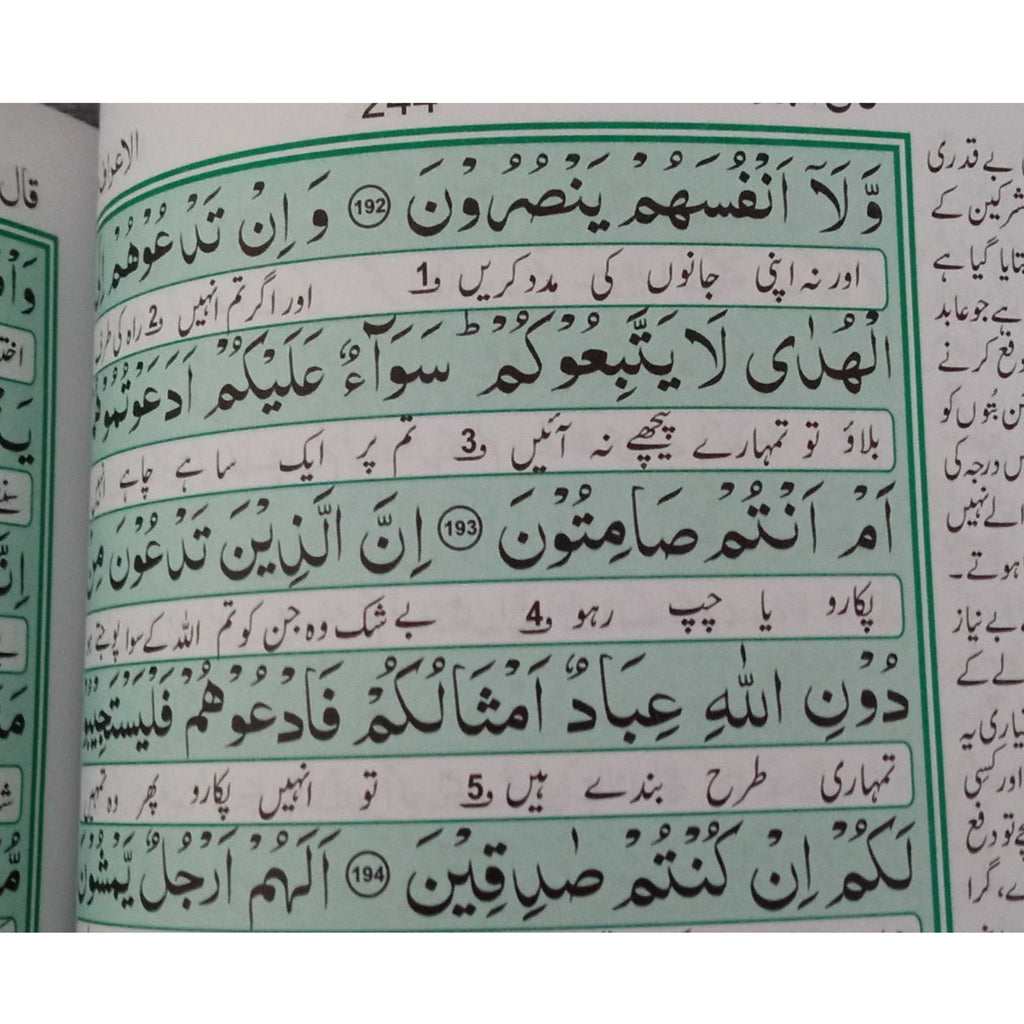 244
الاعراف
وَّلَاۤ اَنْفُسَهُمْ یَنْصُرُوْنَ ﴿192﴾ وَ اِنْ تَدْعُوْهُمْ
اور نہ اپنی جانوں کی مدد کریں ف1 اور اگر تم انہیں ف2 راہ کی طرف
الْهُدٰی لَا یَتَّبِعُوْكُمْ ؕ سَوَآءٌ عَلَیْكُمْ اَدَعَوْتُمُوْ
بلاؤ تو تمہارے پیچھے نہ آئیں ف3 تم پر ایک سا ہے چاہے
اَمْ اَنْتُمْ صَامِتُوْنَ ﴿193﴾ اِنَّ الَّذِیْنَ تَدْعُوْنَ مِنْ
پکارو یا چپ رہو ف4 بے شک وہ جن کو تم اللہ کے سوا پوجتے
دُوْنِ اللّٰهِ عِبَادٌ اَمْثَالُكُمْ فَادْعُوْهُمْ فَلْیَسْتَجِیْبُوْ
تمہاری طرح بندے ہیں ف5 تو انہیں پکارو پھر وہ تمہیں
لَكُمْ اِنْ كُنْتُمْ صٰدِقِیْنَ ﴿194﴾ اَلَهُمْ اَرْجُلٌ یَّمْشُوْنَ
بے قدری
کے
بتایا گیا ہے
ہے جو عابد
دفع کرنے
بتوں کو
درجہ کی
نہیں
ہوتے۔
بے نیاز
کے
یہ
اور کسی
تو دفع
گرا
قال